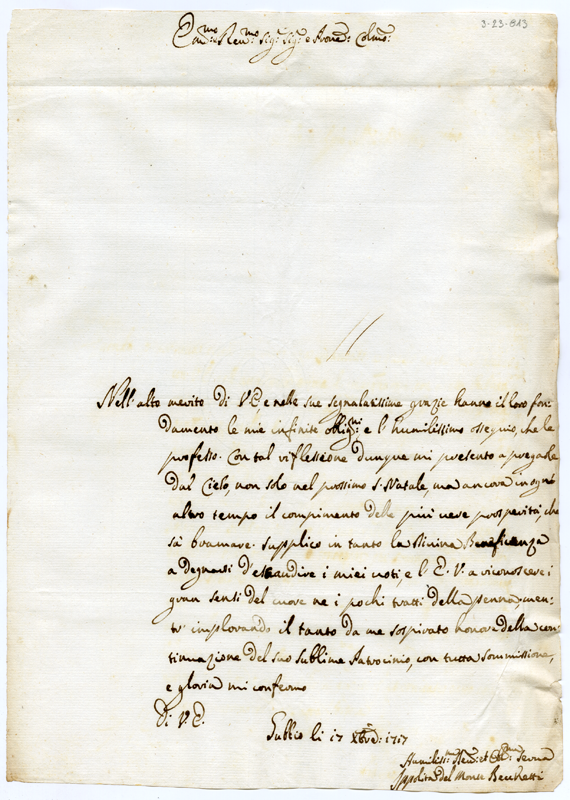 3-23-813
Em.mo e Rev.mo Sig.r Sig.r e Prone Colmo:
Nell'alto merito di V.E, e nelle sue segnalatissime grazie hanno il loro fon:
damento le mie infinite oblig.ni e l'humilissimo ossequio, che le
professo. Con tal riflessione dunque mi presento a pregarle
dal Cielo, non solo nel prossimo S. Natale, ma ancora in ogni
altro tempo il compimento delle più vere prosperità, che
sà bramare. Supplico in tanto la Divina Beneficenza
a degnarsi d'esaudire i miei voti, e l'E.V. a riconoscere i
gran sensi del cuore ne i pochi tratti della penna, men:
tr' implorando il tanto da me sospirato honore della con:
tinuazione del suo sublime Patrocinio, con tutta sommissione,
e gloria mi confermo
Di V.E.
Gubbio li 17 Xbre: 1717
Humiliss.mo Rev.et Obl.mo Serva
Ippolita del Monte Becchetti